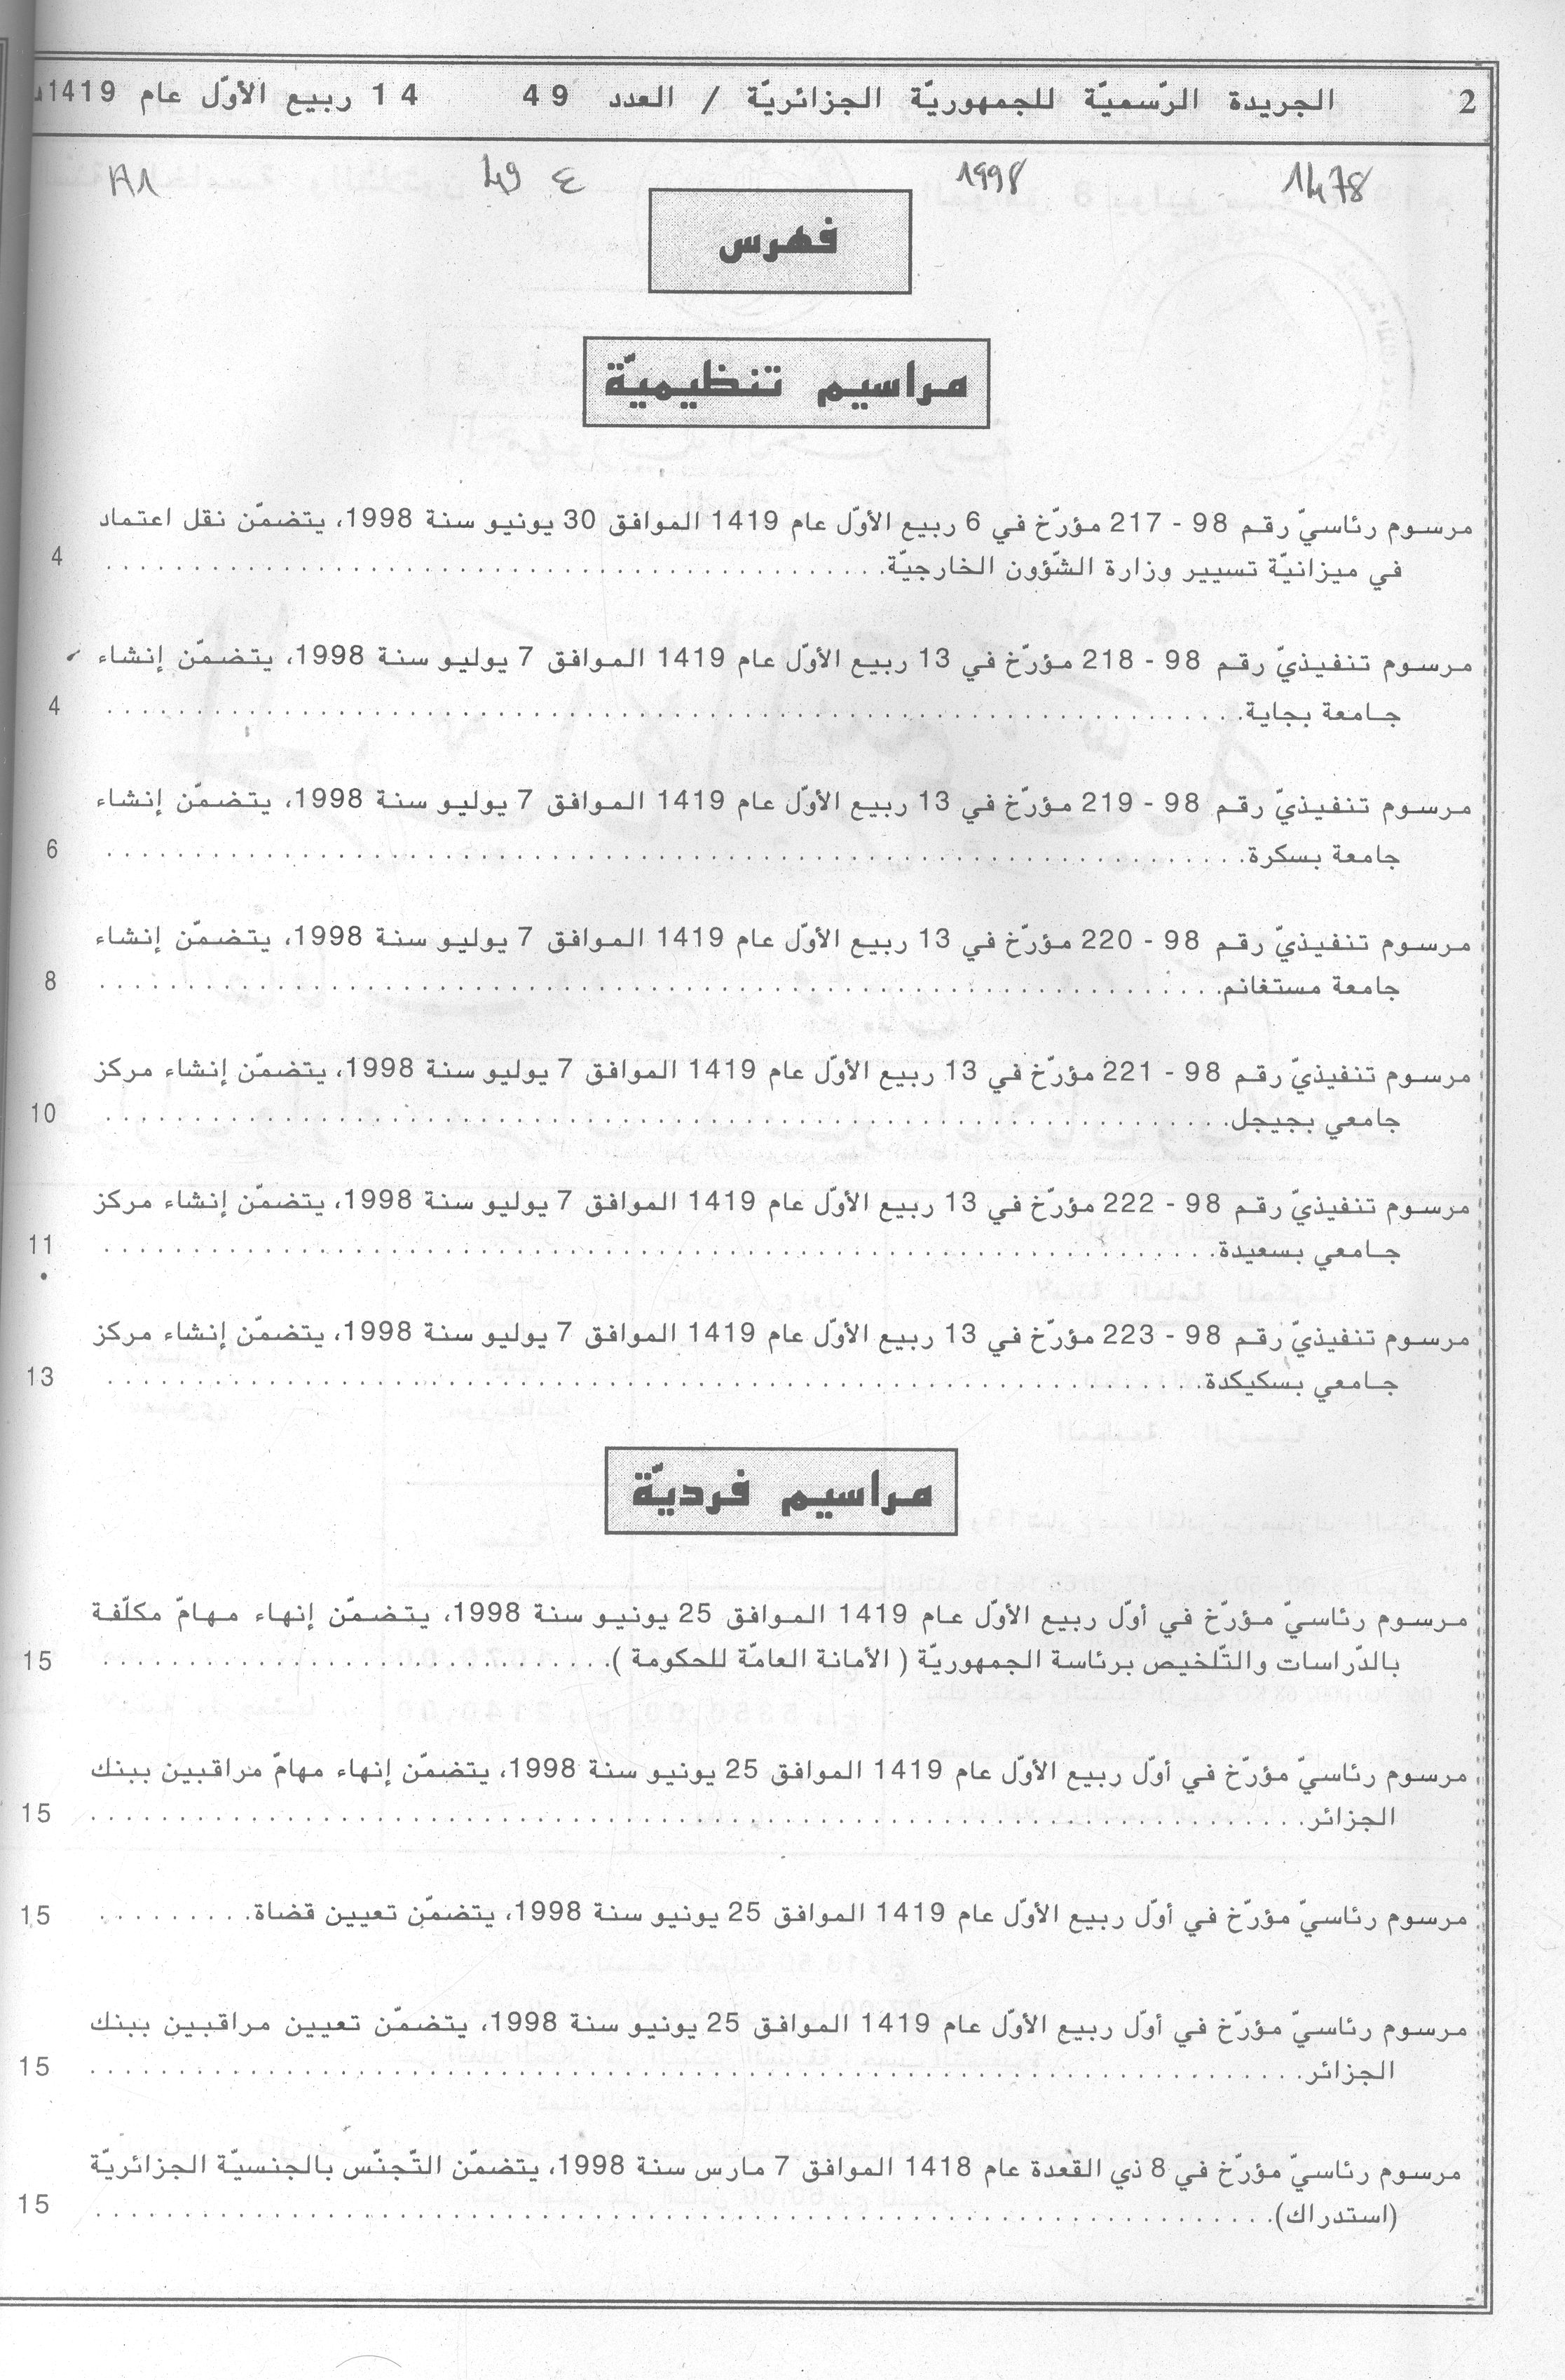 2 الجريدة الرّسميّة للجمهوريّة الجزائريّة / العدد 49 14 ربيع الأوّل عام 1419
1478 1998 ع 49 A1
فهرس
مراسيم تنظيميّة
مرسوم رئاسيّ رقم 98 - 217 مؤرّخ في 6 ربيع الأوّل عام 1419 الموافق 30 يونيو سنة 1998، يتضمّن نقل اعتماد
في ميزانيّة تسيير وزارة الشّؤون الخارجيّة. 4
مرسوم تنفيذيّ رقم 98 - 218 مؤرّخ في 13 ربيع الأوّل عام 1419 الموافق 7 يوليو سنة 1998، يتضمّن إنشاء
جامعة بجاية. 4
مرسوم تنفيذيّ رقم 98 - 219 مؤرّخ في 13 ربيع الأوّل عام 1419 الموافق 7 يوليو سنة 1998، يتضمّن إنشاء
جامعة بسكرة. 6
مرسوم تنفيذيّ رقم 98 - 220 مؤرّخ في 13 ربيع الأوّل عام 1419 الموافق 7 يوليو سنة 1998، يتضمّن إنشاء
جامعة مستغانم. 8
مرسوم تنفيذيّ رقم 98 - 221 مؤرّخ في 13 ربيع الأوّل عام 1419 الموافق 7 يوليو سنة 1998، يتضمّن إنشاء مركز
جامعي بجيجل. 10
مرسوم تنفيذيّ رقم 98 - 222 مؤرّخ في 13 ربيع الأوّل عام 1419 الموافق 7 يوليو سنة 1998، يتضمّن إنشاء مركز
جامعي بسعيدة. 11
مرسوم تنفيذيّ رقم 98 - 223 مؤرّخ في 13 ربيع الأوّل عام 1419 الموافق 7 يوليو سنة 1998، يتضمّن إنشاء مركز
جامعي بسكيكدة. 13
مراسيم فرديّة
مرسوم رئاسيّ مؤرّخ في أوّل ربيع الأوّل عام 1419 الموافق 25 يونيو سنة 1998، يتضمّن إنهاء مهامّ مكلّفة
بالدّراسات والتّلخيص برئاسة الجمهوريّة ( الأمانة العامّة للحكومة ). 15
مرسوم رئاسيّ مؤرّخ في أوّل ربيع الأوّل عام 1419 الموافق 25 يونيو سنة 1998، يتضمّن إنهاء مهامّ مراقبين ببنك
الجزائر. 15
مرسوم رئاسيّ مؤرّخ في أوّل ربيع الأوّل عام 1419 الموافق 25 يونيو سنة 1998، يتضمّن تعيين قضاة. 15
مرسوم رئاسيّ مؤرّخ في أوّل ربيع الأوّل عام 1419 الموافق 25 يونيو سنة 1998، يتضمّن تعيين مراقبين ببنك
الجزائر. 15
مرسوم رئاسيّ مؤرّخ في 8 ذي القعدة عام 1418 الموافق 7 مارس سنة 1998، يتضمّن التّجنّس بالجنسيّة الجزائريّة
(استدراك). 15